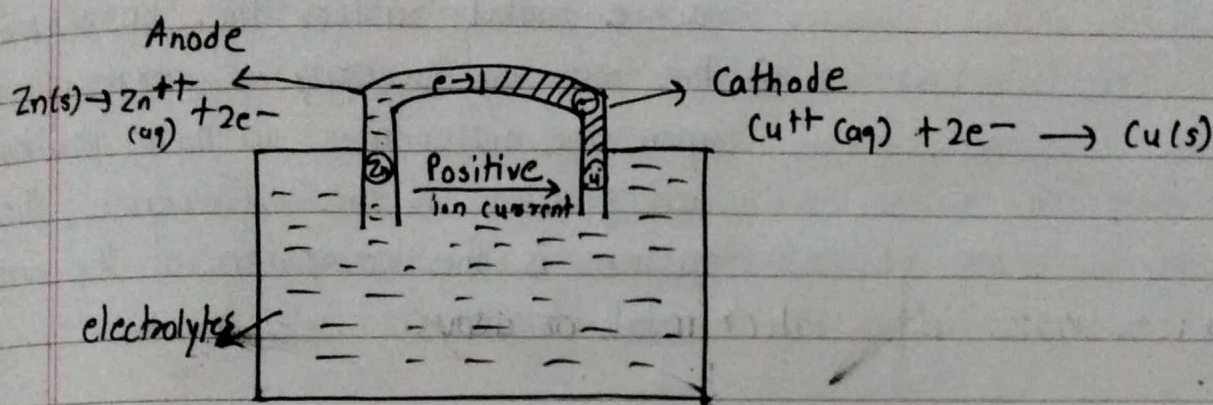 Anode
Zn(s) → Zn++ (aq) + 2e-
e→
Cathode
Cu++ (aq) + 2e- → Cu(s)
Zn
Positive
ion current
electrolytes